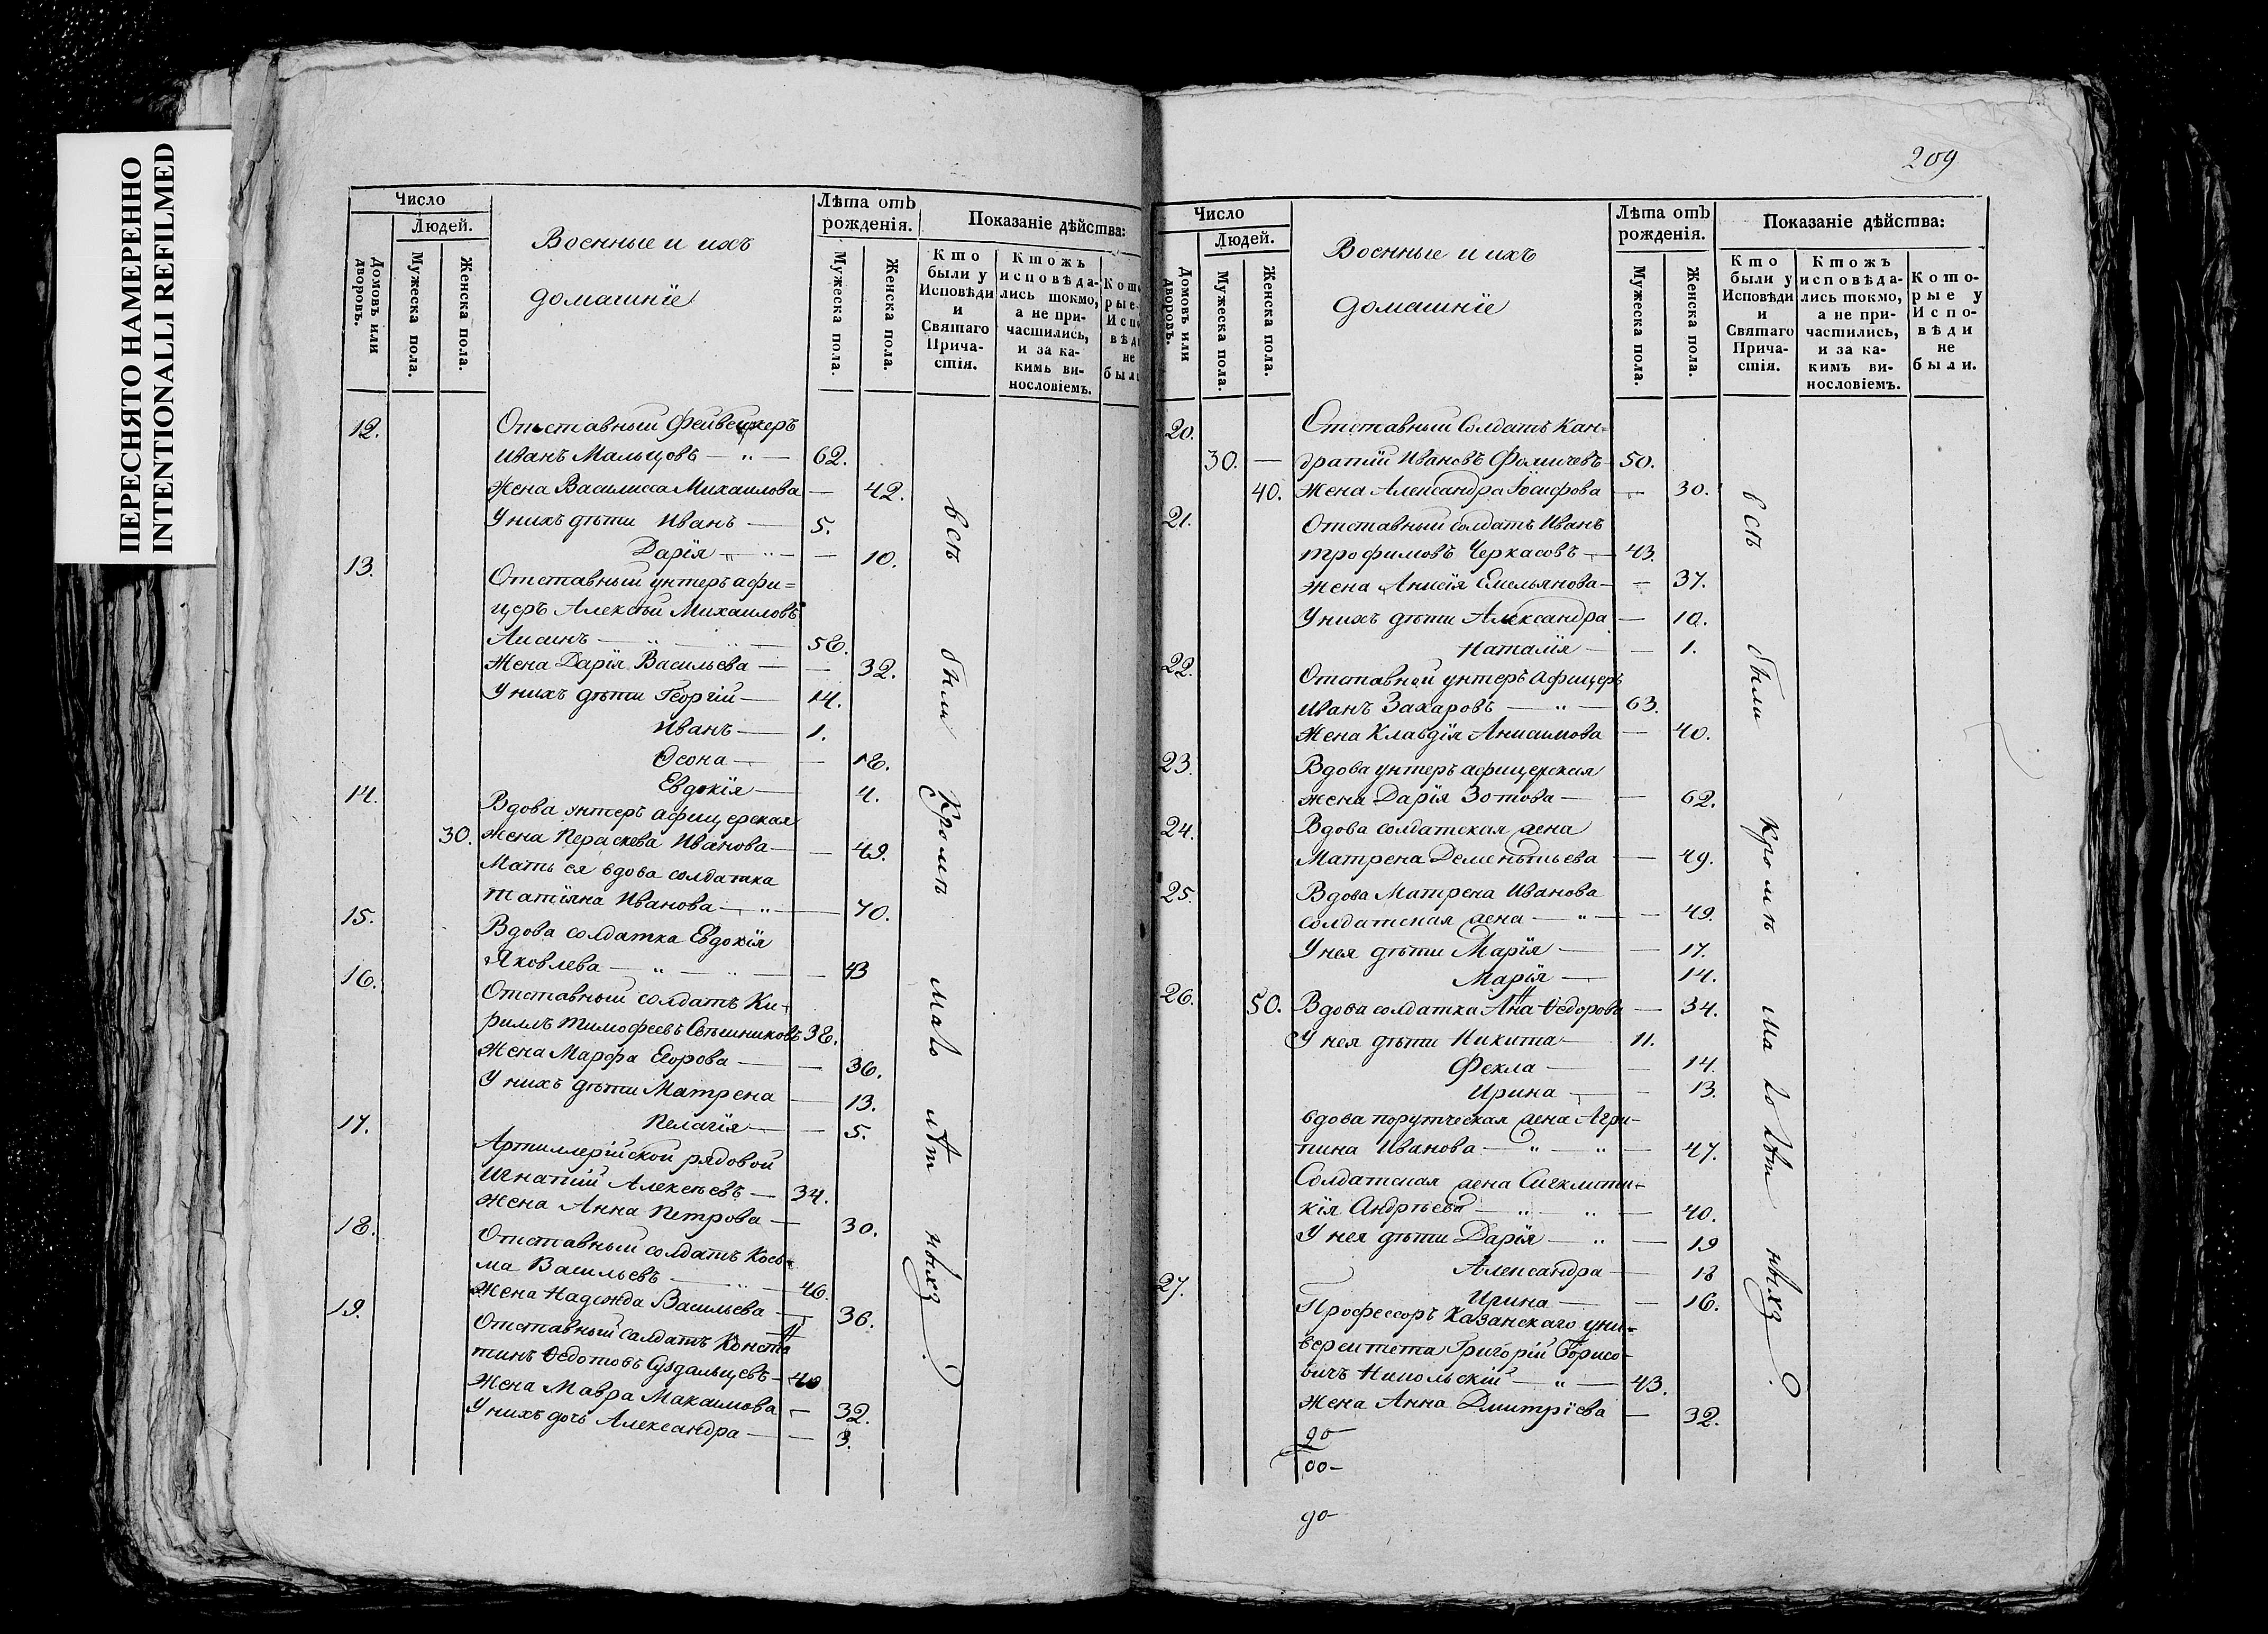 ПЕРЕСНЯТО НАМЕРЕННО
INTENTIONALLI REFILMED
Число
Людей.
Домовъ или дворовъ.
Мужеска пола.
Женска пола.
Военные и ихъ
домашнїе
Лѣта отъ
рожденія.
Мужеска пола.
Женска пола.
Показаніе дѣйства:
Кто
были у
Исповѣди
и
Святаго
Прича-
стія.
Ктожъ
исповѣда-
лись токмо,
а не при-
частились,
и за ка-
кимъ ви-
нословіемъ.
12. Отставный Фейвейкеръ
Иванъ Мальцовъ — „ — 62.
Жена Василисса Михаилова — 42.
У нихъ дѣти Иванъ — 5.
Дарїя — „ — 10.
13. Отставный унтеръ афи=
церъ Алексѣй Михаиловъ
Лисинъ — „ — 58.
Жена Дарїя Васильева — — 32.
У нихъ дѣти Георгїй — 14.
Иванъ — 1.
— 18.
Евдокїя — 4.
14. Вдова унтеръ афицерская
30. жена Пераскева Иванова — — 49.
Мать ея вдова солдатка
татїяна Иванова — „ — 70.
15. Вдова солдатка Евдокїя
Яковлева — „ — „ — 43
16. Отставный солдатъ Ки-
риллъ тимофеевъ Свѣшниковъ 38.
Жена Марфа Егорова — — 36.
У нихъ дѣти Матрена — 13.
Пелагїя — — 5.
17. Артиллерїйской рядовой
Игнатїй Алексѣевъ — 34.
Жена Анна Петрова — 30.
18. Отставный солдатъ Козь-
ма Васильевъ — „ — 46.
Жена Надежда Васильева — 36.
19. Отставный салдатъ Конста
тинъ Ѳедотовъ Суздальцевъ — 40
Жена Мавра Макаимова — 32.
У нихъ дочь Александра — — 3.
всѣ были Кромѣ мало лѣт ныхъ.
209
Число
Людей.
Домовъ или дворовъ.
Мужеска пола.
Женска пола.
Военные и ихъ
домашнїе
Лѣта отъ
рожденія.
Мужеска пола.
Женска пола.
Показаніе дѣйства:
Кто
были у
Исповѣди
и
Святаго
Прича-
стія.
Ктожъ
исповѣда-
лись токмо,
а не при-
частились,
и за ка-
кимъ ви-
нословіемъ.
Кото-
рые у
Испо-
вѣди
не
были.
20. Отставный Солдатъ Кан=
30. — дратїй Ивановъ Фомичевъ — 50.
40. Жена Александра Їосифова — 30.
21. Отставный солдатъ Иванъ
трофимовъ Черкасовъ — 43.
Жена Анисїя Емельянова — — 37.
У нихъ дѣти Александра — 10.
Наталїя — — 1.
22. Отставной унтеръ Афицеръ
Иванъ Захаровъ — „ — 63.
Жена Клавдїя Анисимова — 40.
23. Вдова унтеръ афицерская
жена Дарїя Зотова — — 62.
24. Вдова солдатская жена
Матрена Дементьева — 49.
25. Вдова Матрена Иванова
солдатская жена — „ — — 49.
У нея дѣти Марїя — — 17.
Марїя — 14.
26. 50. Вдова солдатка Ана Ѳедорова — 34.
У нея дѣти Никита — 11.
Фекла — — 14.
Ирина — — 13.
вдова порутческая жена Агри-
пина Иванова — „ — „ — 47.
Солдатская жена
кїя Андрѣева — „ „ — 40.
У нея дѣти Дарїя — „ — 19
Александра — 18
Ирина — — 16.
27. Профессоръ Казанскаго уни=
верситета Григорїй Борисо-
вичъ Никольскїй — „ — 43.
Жена Анна Дмитрїева — 32.
всѣ были Кромѣ ма ло лѣт ныхъ.